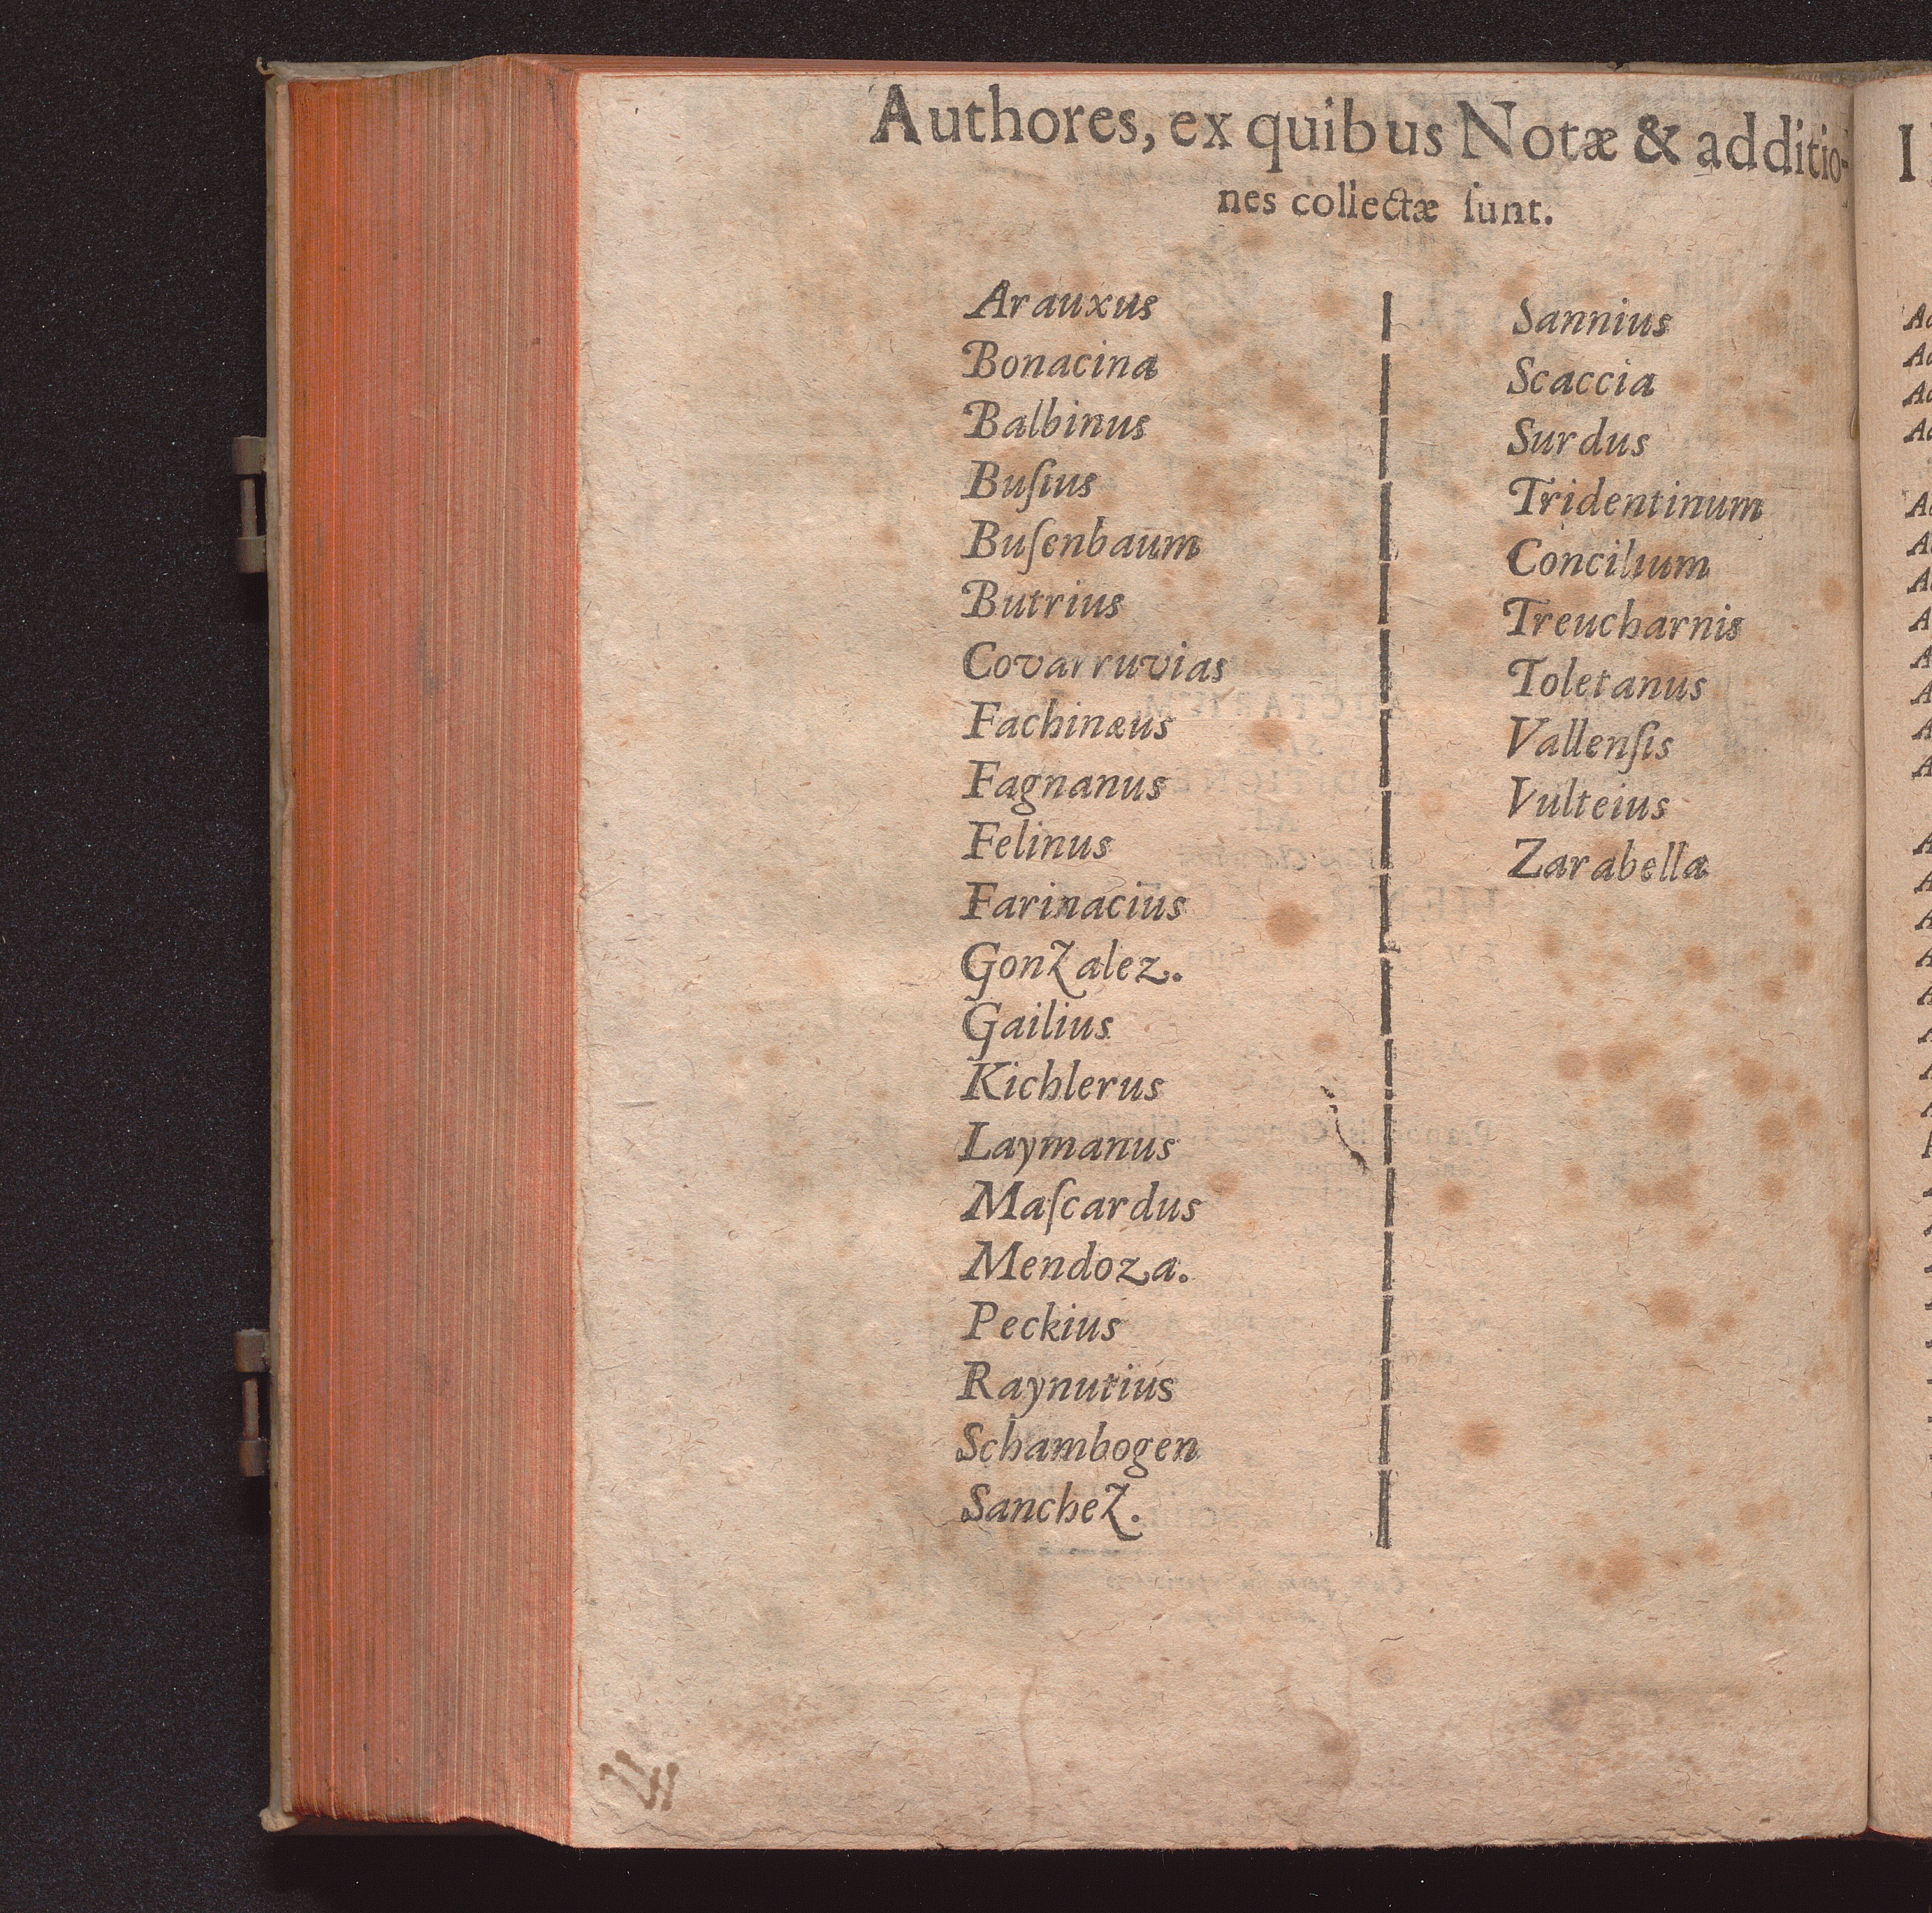 Authores, ex quibus Notæ & additio-
nes collectæ ſunt.
Arauxus
Bonacina
Balbinus
Buſius
Buſenbaum
Butrius
Covarruvias
Fachinæus
Fagnanus
Felinus
Farinacius
Gonzalez.
Gailius
Kichlerus
Laymanus
Maſcardus
Mendoza.
Peckius
Raynutius
Schambogen
Sanchez.
Sannius
Scaccia
Surdus
Tridentinum
Concilium
Treucharnis
Toletanus
Vallenſis
Vulteius
Zarabella